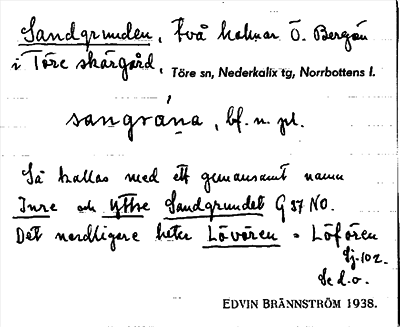 Sandgrunden, två holmar Ö. Bergön
i Töre skärgård, Töre sn, Nederkalix tg, Norrbottens l.
sangråna, bf. n. pl.
Så kallas med ett gemensamt namn
Inre och Yttre Sandgrundet G 37 NO.
Det nordligare heter Lövören = Löfören
Sj. 102.
Se d. o.
EDVIN BRÄNNSTRÖM 1938.